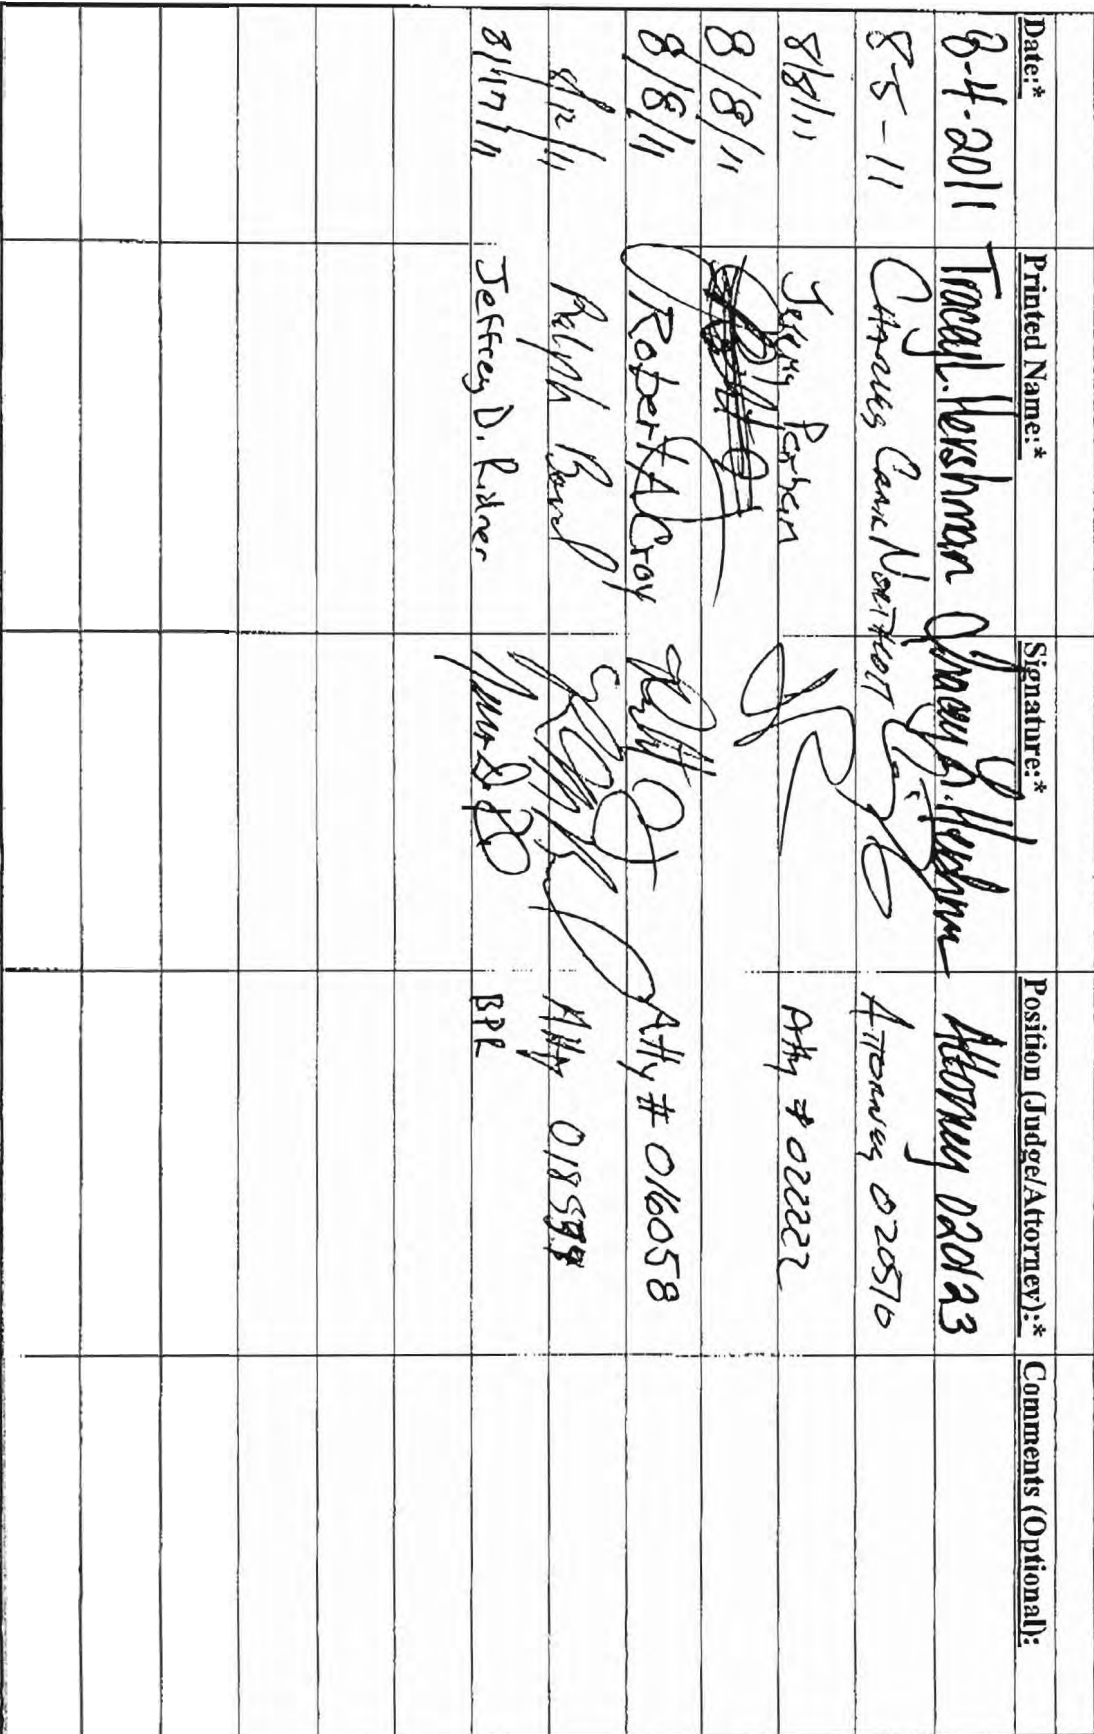 Date:* Printed Name:* Signature:* Position (Judge/Attorney):* Comments (Optional):
8-4-2011 Tracy L. Hershman Tracy L. Hershman Attorney 020123
8-5-11 CHARLES CRAIG NORTHCOTT ATTORNEY 020510
8/8/11 Jeremy Atty # 022222
8/8/11
8/8/11 Robert A Croy Atty # 016058
8/12/11 Ralph Atty
8/17/11 Jeffrey D. Ridner BPR